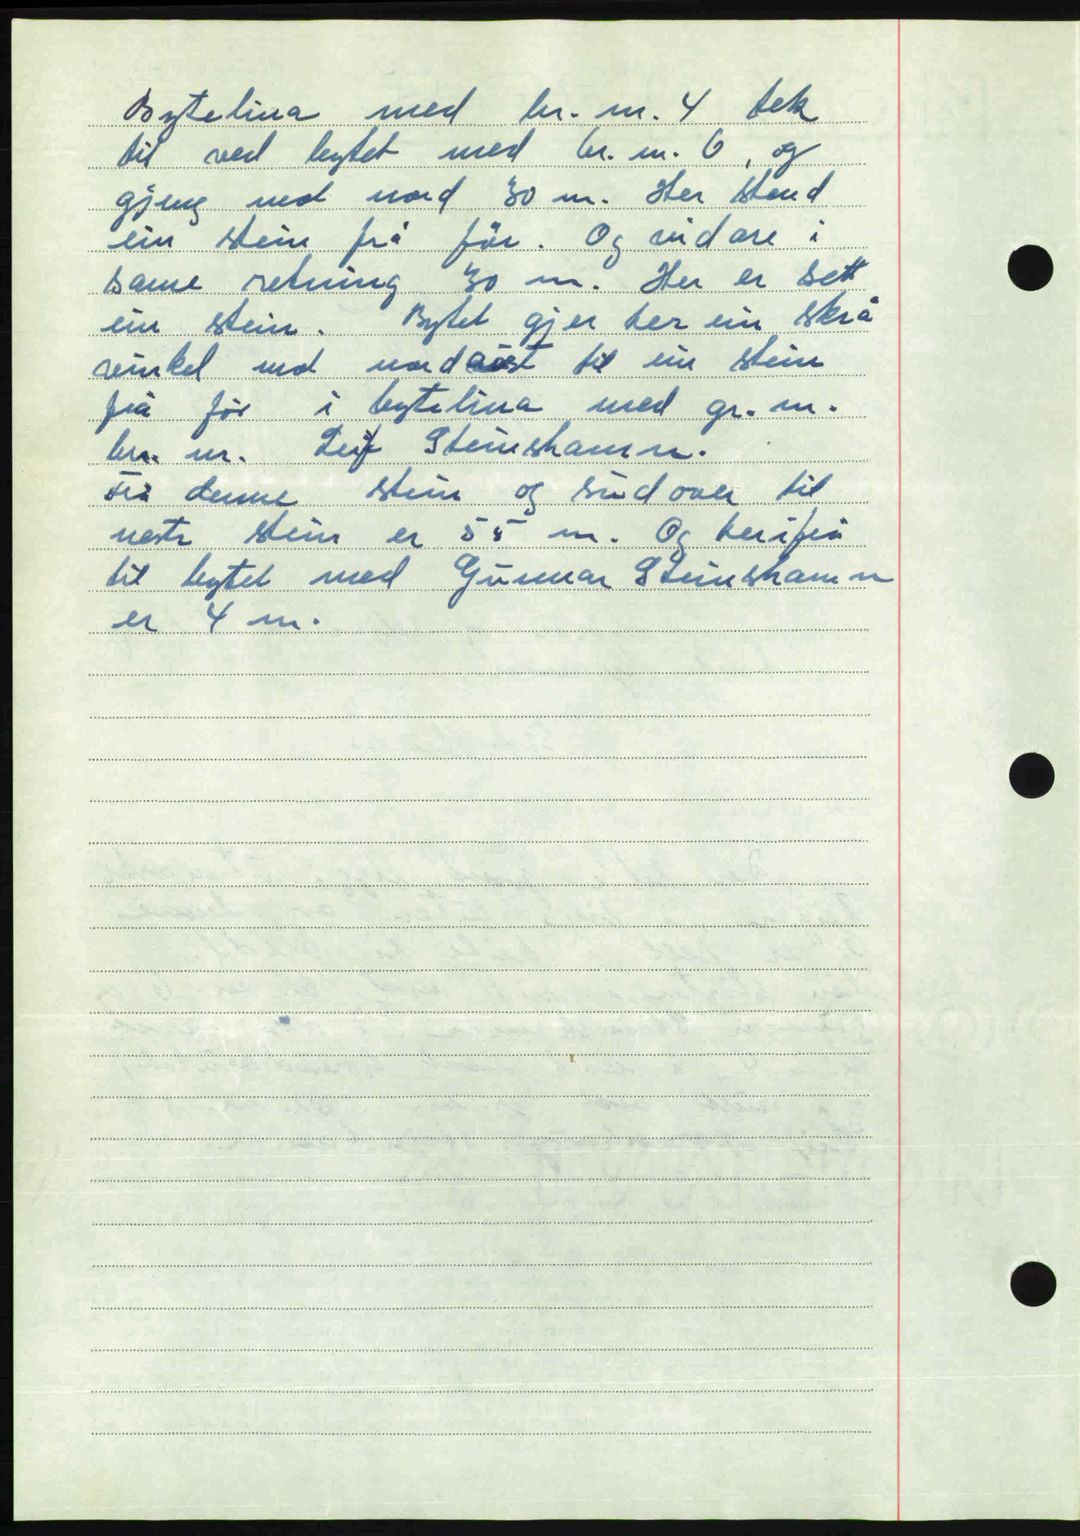 Bytelina med br. nr. 4 tek
til ved bytet med br. nr. 6, og
gjeng mot nord 30 m. Her stend
ein stein frå før. Og vidare i
same retning 30 m. Her er sett
ein stein. Bytet gjer her ein skrå
vinkel mot nordaust til ein stein
frå før i bytelina med gr. nr.
br. nr. Leif Steinshamn.
Frå denne stein og sudover til
neste stein er 55 m. Og herifrå
til bytet med Gunnar Steinshamn
er 4 m.